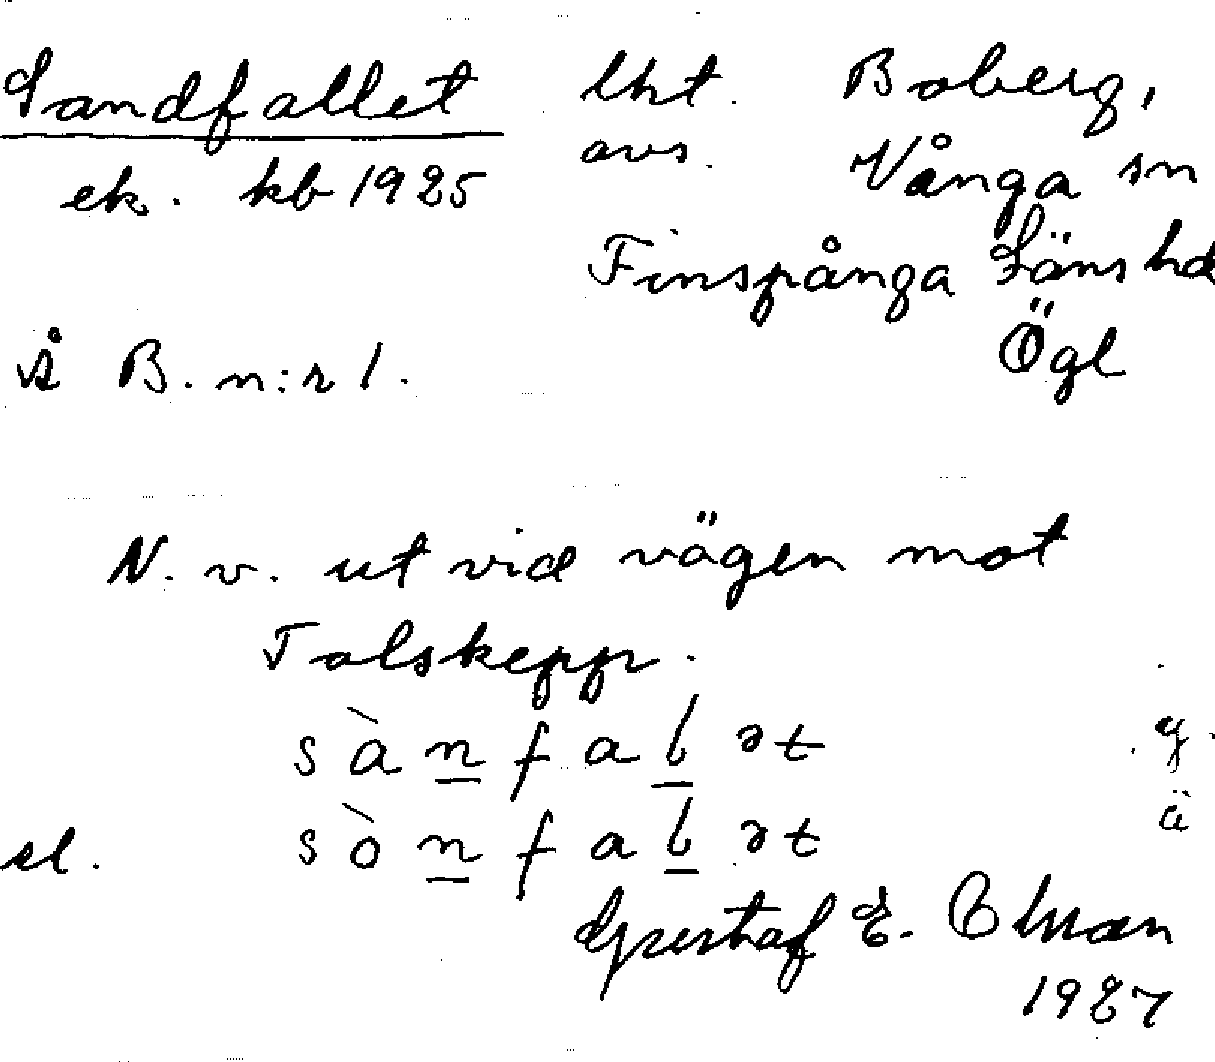 Sandfallet lht. Boberg,
avs. Vånga sn
ek. kb 1925
Finspånga Läns hd
Ögl
Å B. n:r 1.
N. v. ut vid vägen mot
Tolskepp.
sànfalət
el. sònfalət
Gustaf E.
1927